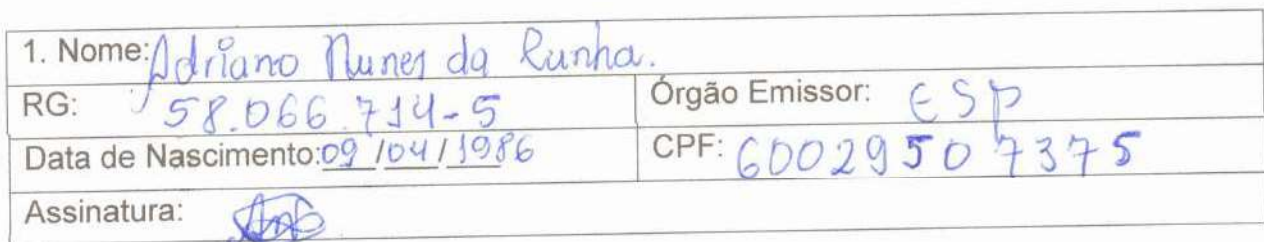 1. Nome: Adriano Nunes da Cunha.
RG: 58.066.714-5 Órgão Emissor: ESP
Data de Nascimento: 09/04/1986 CPF: 60029507375
Assinatura: